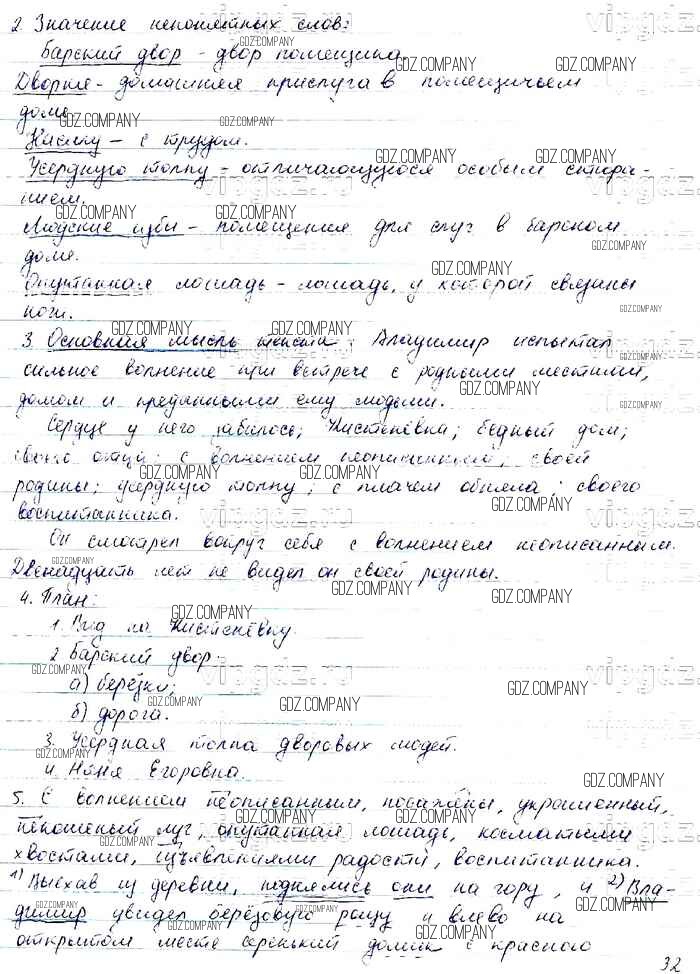 2. Значение непонятных слов:
Барский двор - двор помещика.
Дворня - домашняя прислуга в помещичьем
доме.
Насилу - с трудом.
Усердную толпу - отличающуюся особым стара-
нием.
Людские избы - помещения для слуг в барском
доме.
Опутанная лошадь - лошадь, у которой связаны
ноги.
3. Основная мысль текста: Владимир испытал
сильное волнение при встрече с родными местами,
домом и преданными ему людьми.
Сердце у него забилось; Кистенёвка; бедный дом;
своего отца; с волнением неописанным; своей
родины; усердную толпу; с плачем обняла; своего
воспитанника.
Он смотрел вокруг себя с волнением неописанным.
Двенадцать лет не видел он своей родины.
4. План:
1. Вид на Кистенёвку.
2 Барский двор:
а) берёзки;
б) дорога.
3. Усердная толпа дворовых людей.
4. Няня Егоровна.
5. С волнением неописанным, посажены, украшенный,
некошеный луг, опутанная лошадь, косматыми
хвостами, изъявлениями радости, воспитанника.
1) Выехав из деревни, поднялись они на гору, и 2) Вла-
димир увидел берёзовую рощу и влево на
открытом месте серенький домик с красною
32
GDZ.COMPANY
vipgdz.ru